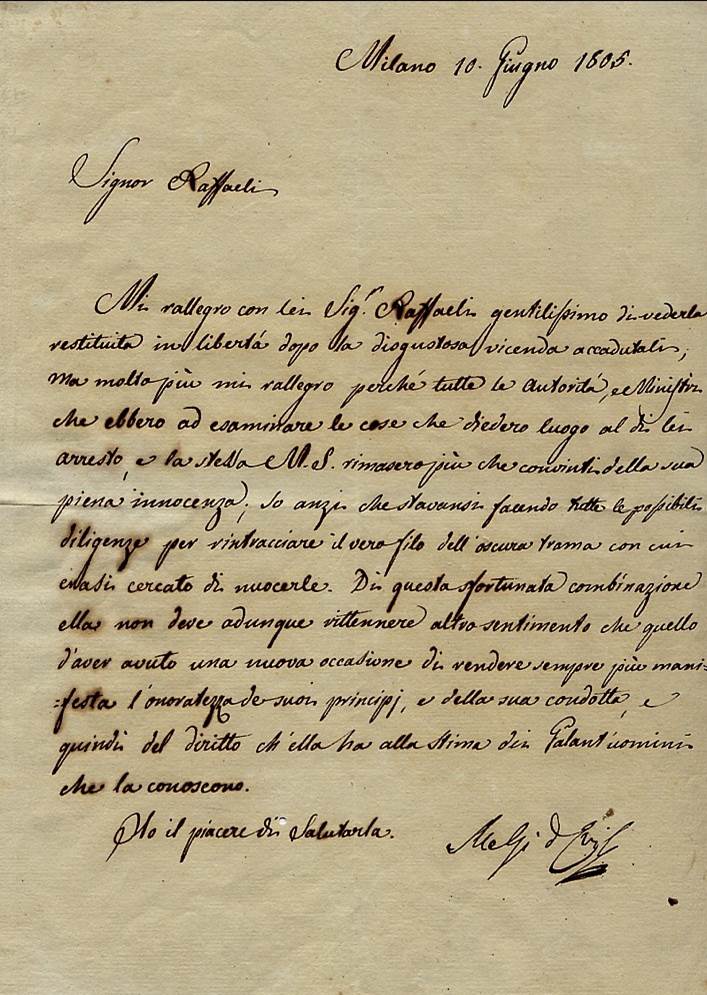 Milano 10. Giugno 1805.
Signor Raffaeli
Mi rallegro con lei Sig.r Raffaeli gentilissimo di vederla
restituita in libertá dopo la disgustosa vicenda accadutali;
ma molto più mi rallegro perché tutte le autoritá, e Ministri
che ebbero ad esaminare le cose che diedero luogo al di lei
arresto, e la stessa M.S. rimasero più che convinti della sua
piena innocenza; so anzi che stavansi facendo tutte le possibili
diligenze per rintracciare il vero filo dell'oscura trama con cui
erasi cercato di nuocerle. Di questa sfortunata combinazione
ella non deve adunque rittennere altro sentimento che quello
d'aver avuto una nuova occasione di rendere sempre più mani-
=festa l'onoratezza de suoi principj, e della sua condotta, e
quindi del diritto ch'ella ha alla stima di Galant'uomini
che la conoscono.
Ho il piacere di Salutarla.
Melzi d'Eril